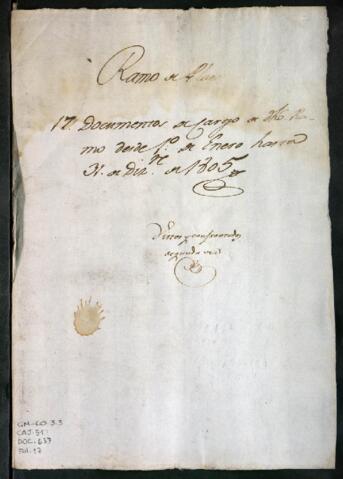 Ramo de
17. Documentos de Cargo de dho Ra-
mo desde 1.º de Enero hasta
31. de Diz.re de 1805
Vistos y confrontados
segunda vez
GM-CO.3.3
CAJ.51
DOC.637
Fol.17